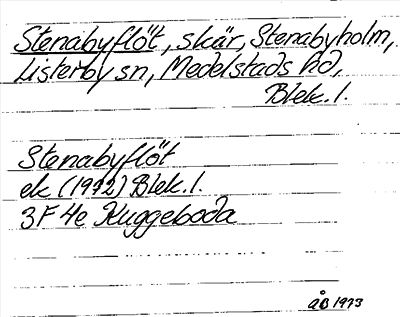 Stenabyflöt, skär, Stenabyholm,
Listerby sn, Medelstads hd,
Blek. l.
Stenabyflöt
ek (1972) Blek. l.
3F 4e Kuggeboda
ÅB 1973